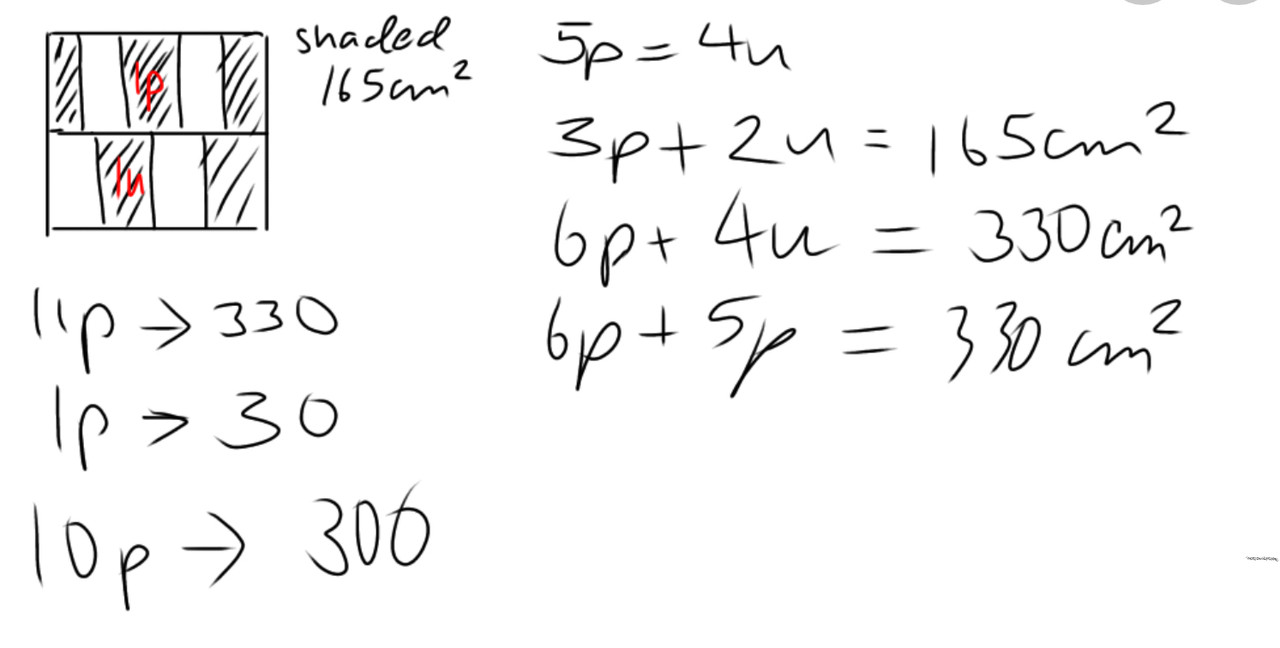 shaded
165cm²
1p
1u
5p = 4u
3p + 2u = 165cm²
6p + 4u = 330cm²
6p + 5p = 330cm²
11p → 330
1p → 30
10p → 300